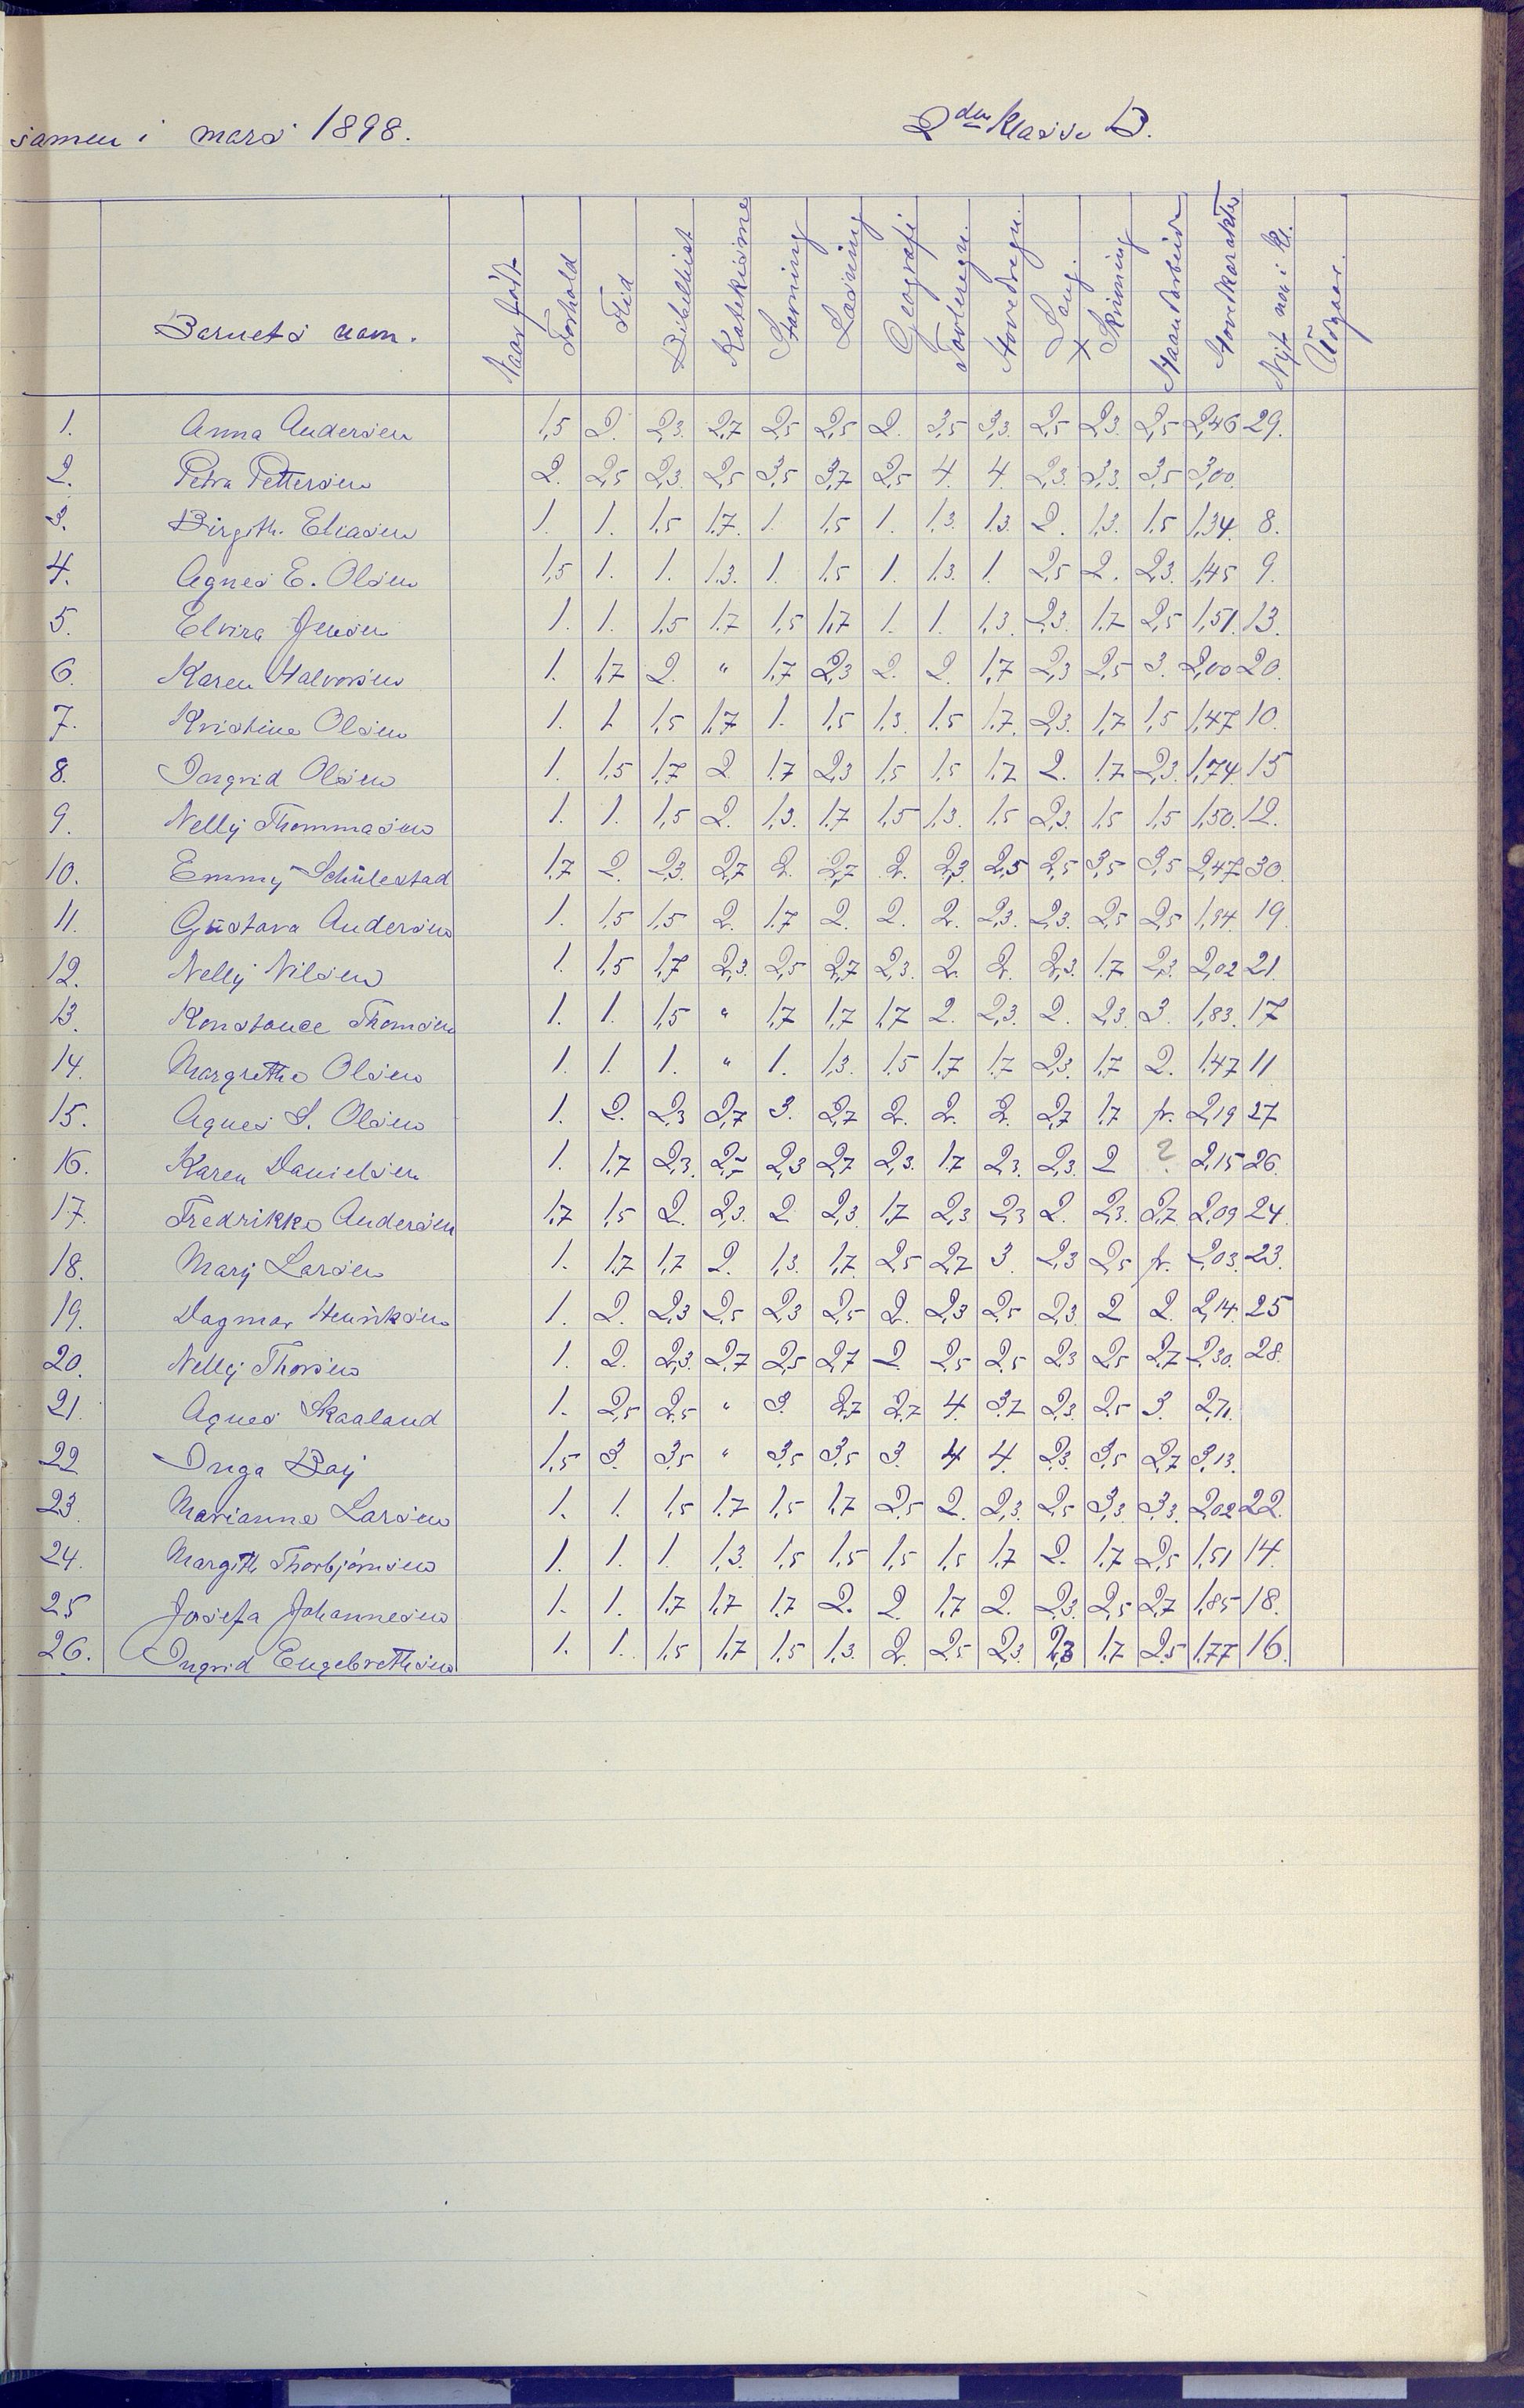 samen i mars 1898. 2den Klasse B.
Barnets navn. Naar født Forhold Flid Bibelhist Katekisme Stavning Læsning Geografi Tavleregn. Hovedregn. Sang. + Skrivning Haandarbeide Hovedkarakter Nyt nr. i kl. Udgaar.
1. Anna Andersen 1,5 2. 2,3. 2,7 2,5 2,5 2. 3,5 3,3. 2,5 2,3. 2,5 2,46 29.
2. Petra Pettersen 2. 2,5 2,3. 2,5 3,5 3,7 2,5 4. 4. 2,3. 3,3. 3,5 3,00
3. Birgith. Eliasen 1. 1. 1,5 1,7. 1. 1,5 1. 1,3. 1,3 2. 1,3. 1,5 1,34. 8.
4. Agnes E. Olsen 1,5 1. 1. 1,3. 1. 1,5 1. 1,3. 1. 2,5 2. 2,3. 1,45 9.
5. Elvira Jensen 1. 1. 1,5 1,7 1,5 1,7 1. 1. 1,3. 2,3. 1,7 2,5 1,51. 13.
6. Karen Halvorsen 1. 1,7 2. " 1,7 2,3 2. 2. 1,7 2,3 2,5 3. 2,00 20.
7. Kristine Olsen 1. 1 1,5 1,7 1. 1,5 1,3. 1,5 1,7. 2,3. 1,7 1,5 1,47 10.
8. Ingrid Olsen 1. 1,5 1,7 2. 1,7 2,3 1,5 1,5 1,7 2. 1,7 2,3. 1,74. 15
9. Nelly Thommasen 1. 1. 1,5 2. 1,3. 1,7 1,5 1,3. 1,5 2,3. 1,5 1,5 1,50. 12.
10. Emmy Schülestad 1,7 2. 2,3. 2,7 2. 2,7 2. 2,3 2,5 2,5 3,5 3,5 2,47 30.
11. Gustava Andersen 1. 1,5 1,5 2. 1,7 2. 2. 2. 2,3. 2,3. 2,5 2,5 1,94. 19.
12. Nelly Nilsen 1. 1,5 1,7 2,3. 2,5 2,7 2,3. 2. 2. 2,3. 1,7 2,3. 2,02 21.
13. Konstance Thomsen 1. 1. 1,5 " 1,7 1,7 1,7 2. 2,3. 2. 2,3. 3. 1,83. 17
14. Margrethe Olsen 1. 1. 1. " 1. 1,3. 1,5 1,7 1,7 2,3. 1,7 2. 1,47 11
15. Agnes S. Olsen 1. 2. 2,3 2,7 3. 2,7 2. 2. 2. 2,7 1,7 fr. 2,19 27
16. Karen Danielsen 1. 1,7 2,3. 2,5 2,3 2,7 2,3. 1,7 2,3. 2,3. 2 ? 2,15 26.
17. Fredrikke Andersen 1,7 1,5 2. 2,3. 2 2,3. 1,7 2,3 2,3 2. 2,3. 2,7. 2,09 24.
18. Mary Larsen 1. 1,7 1,7 2. 1,3. 1,7. 2,5 2,7 3. 2,3 2,5 fr. 2,03. 23.
19. Dagmar Henriksen 1. 2. 2,3 2,5 2,3 2,5 2. 2,3 2,5 2,3. 2 2. 2,14. 25
20. Nelly Thorsen 1. 2. 2,3. 2,7 2,5 2,7 2 2,5 2,5 2,3 2,5 2,7 2,30. 28.
21. Agnes Skaaland 1. 2,5 2,5 " 3. 2,7 2,7 4. 3,7 2,3. 2,5 3. 2,71.
22 Inga Bay 1,5 3. 3,5 " 3,5 3,5 3. 4 4. 2,3. 3,5 2,7 3,13.
23. Marianne Larsen 1. 1. 1,5 1,7 1,5 1,7 2,5 2. 2,3. 2,5 3,3 3,3. 2,02 22.
24. Margith Thorbjørnsen 1. 1. 1. 1,3. 1,5 1,5 1,5 1,5 1,7 2. 1,7 2,5 1,51 14.
25 Josefa Johannesen 1. 1. 1,7 1,7 1,7 2. 2. 1,7 2. 2,3. 2,5 2,7 1,85 18.
26. Ingrid Engebrethsen 1. 1. 1,5 1,7 1,5 1,3. 2. 2,5 2,3. 2,3 1,7 2,5 1,77 16.